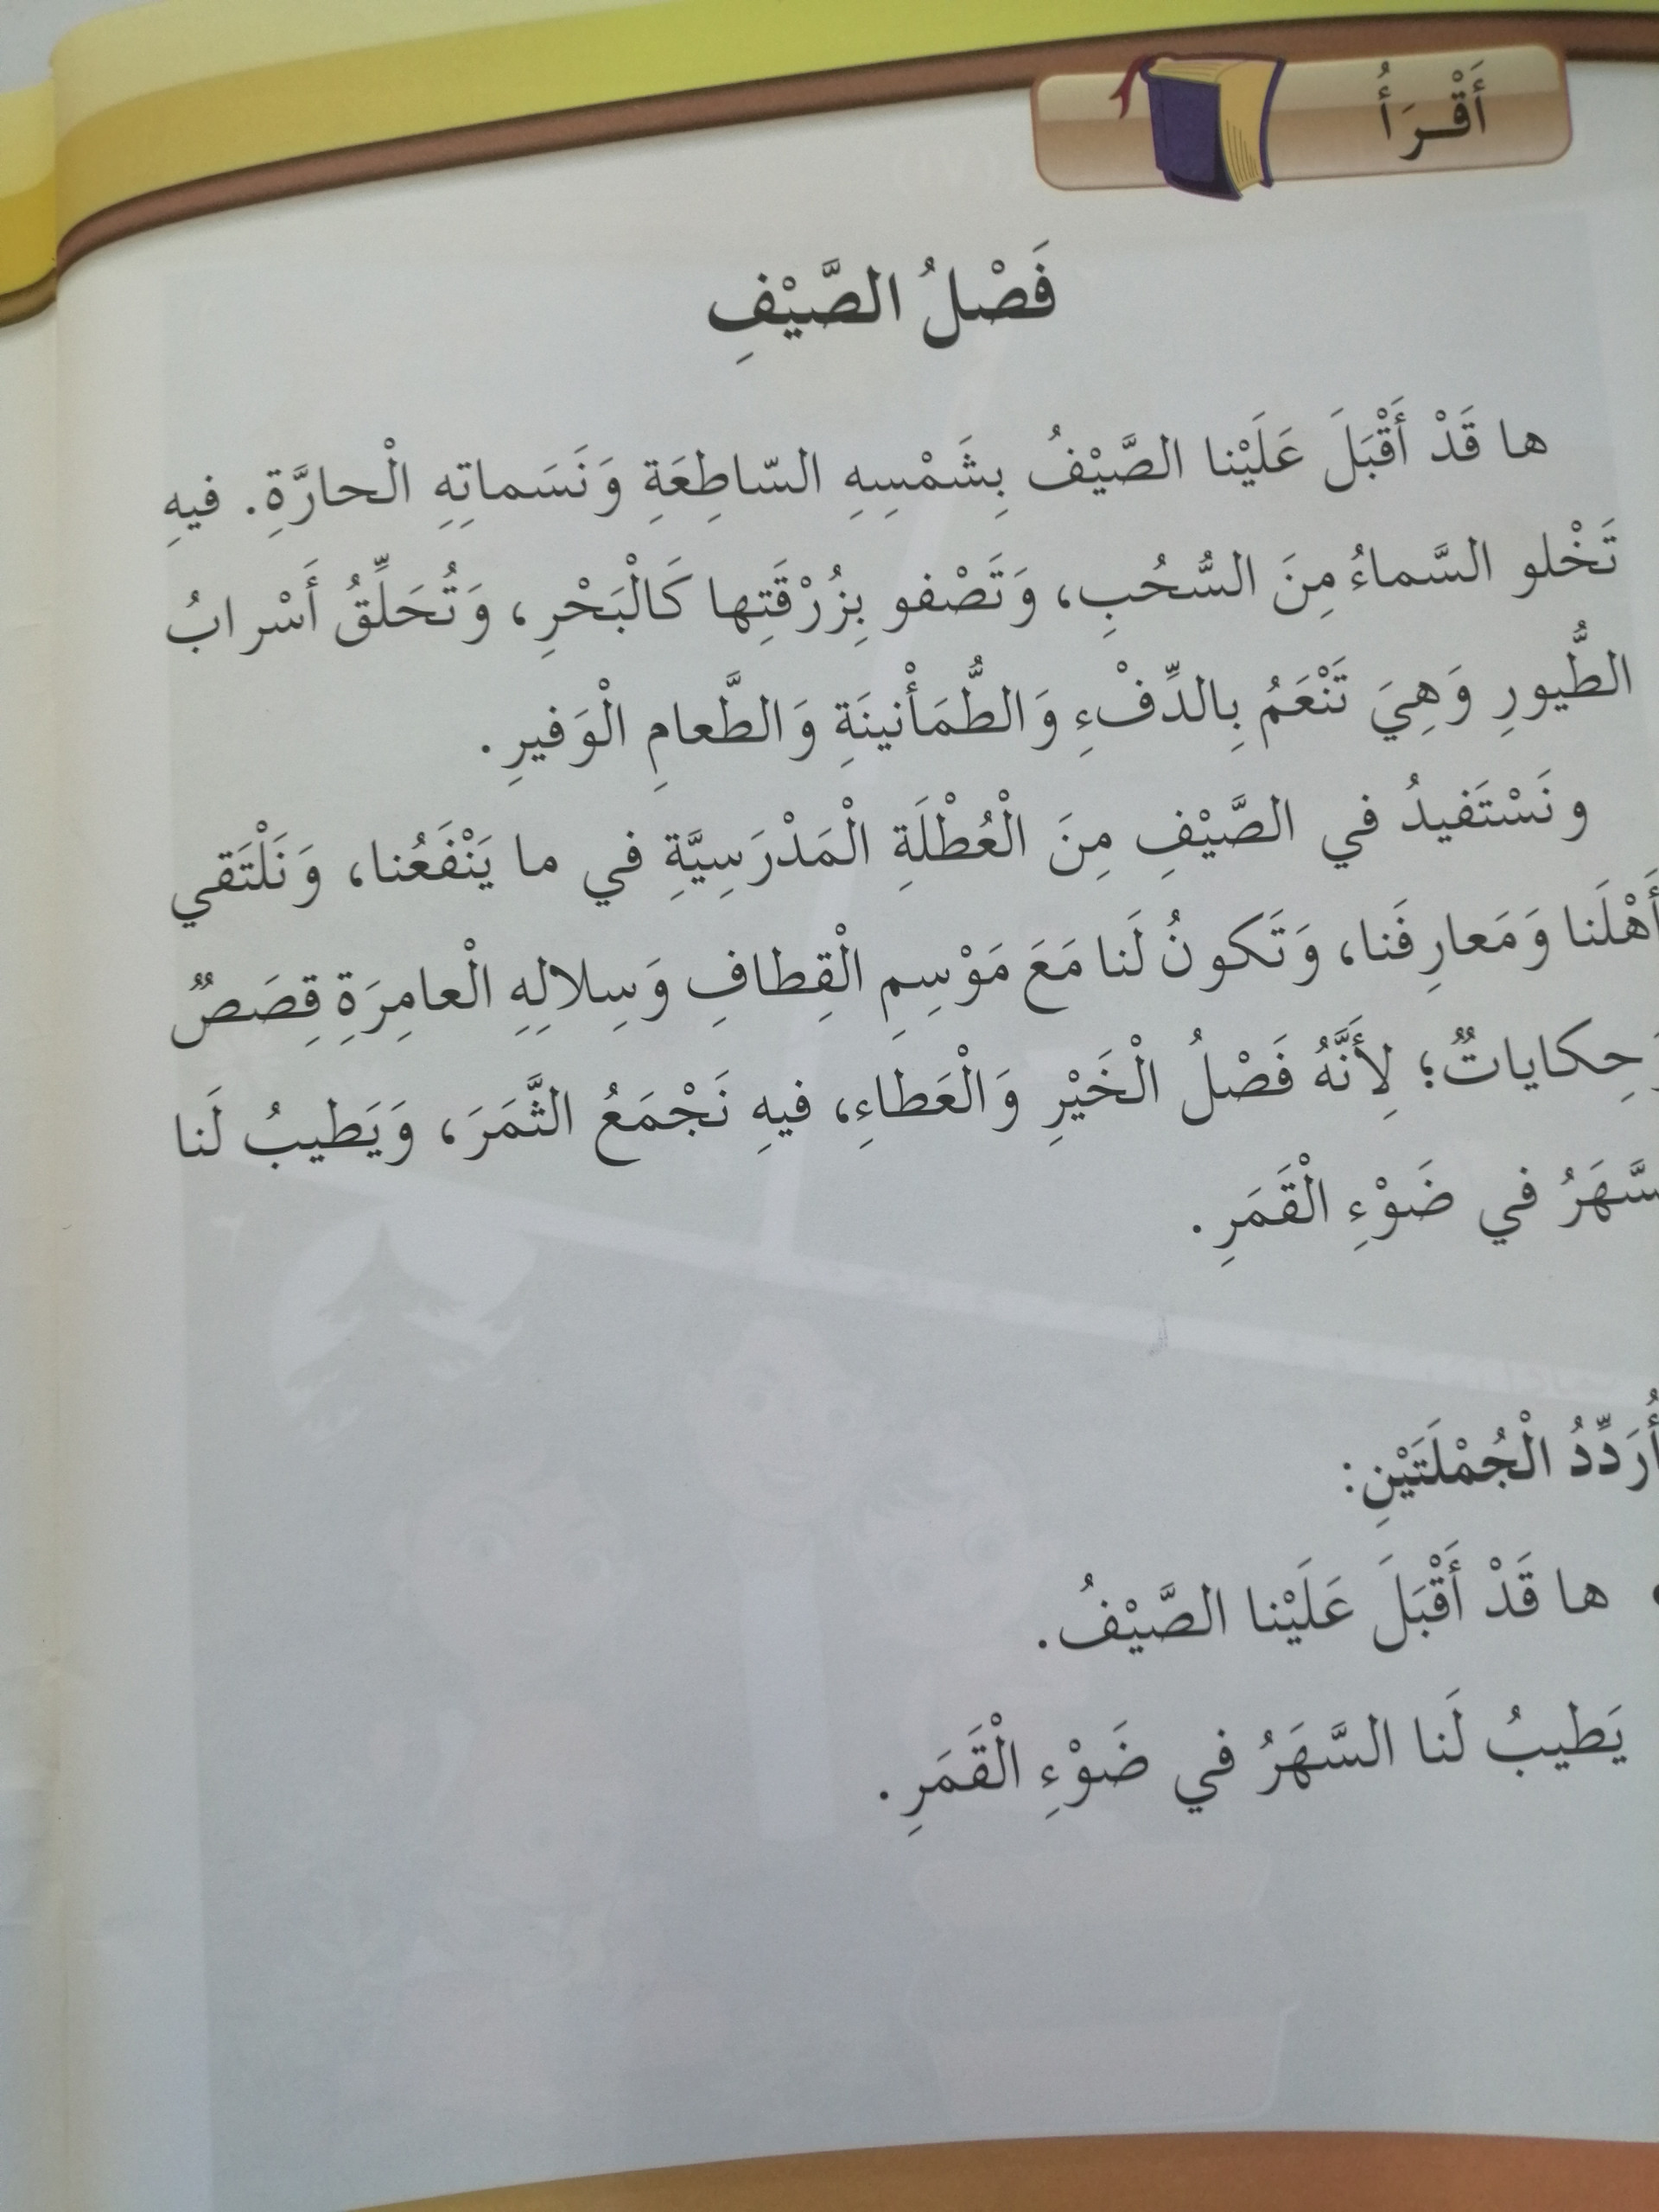 أَقْـرَأُ
فَصْلُ الصَّيْفِ
ها قَدْ أَقْبَلَ عَلَيْنا الصَّيْفُ بِشَمْسِهِ السّاطِعَةِ وَنَسَماتِهِ الْحارَّةِ. فيهِ
تَخْلو السَّماءُ مِنَ السُّحُبِ، وَتَصْفو بِزُرْقَتِها كَالْبَحْرِ، وَتُحَلِّقُ أَسْرابُ
الطُّيورِ وَهِيَ تَنْعَمُ بِالدِّفْءِ وَالطُّمَأْنينَةِ وَالطَّعامِ الْوَفيرِ.
ونَسْتَفيدُ في الصَّيْفِ مِنَ الْعُطْلَةِ الْمَدْرَسِيَّةِ في ما يَنْفَعُنا، وَنَلْتَقي
أَهْلَنا وَمَعارِفَنا، وَتَكونُ لَنا مَعَ مَوْسِمِ الْقِطافِ وَسِلالِهِ الْعامِرَةِ قِصَصٌ
وَحِكاياتٌ؛ لِأَنَّهُ فَصْلُ الْخَيْرِ وَالْعَطاءِ، فيهِ نَجْمَعُ الثَّمَرَ، وَيَطيبُ لَنا
السَّهَرُ في ضَوْءِ الْقَمَرِ.
أُرَدِّدُ الْجُمْلَتَيْنِ:
ها قَدْ أَقْبَلَ عَلَيْنا الصَّيْفُ.
يَطيبُ لَنا السَّهَرُ في ضَوْءِ الْقَمَرِ.